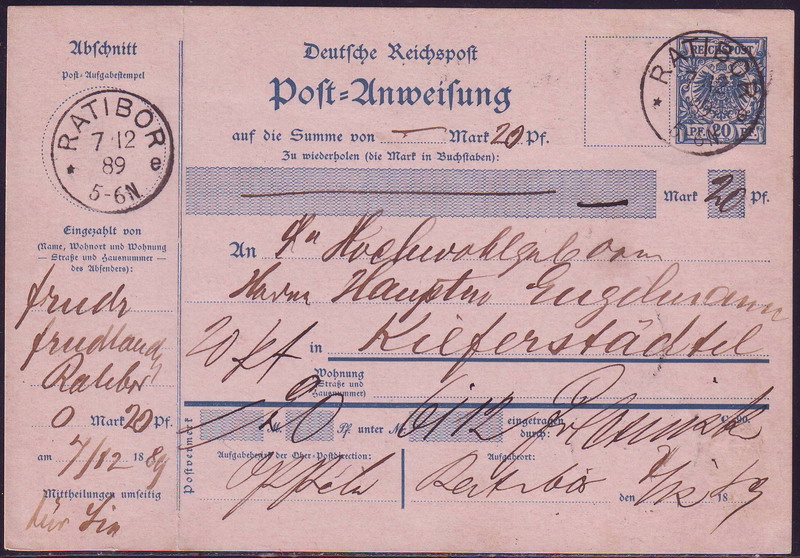 Abschnitt
Post-Aufgabestempel
RATIBOR
7 12
89
5-6N
* e
Eingezahlt von
(Name, Wohnort und Wohnung
— Straße und Hausnummer —
des Absenders):
Ratibor
0 Mark 20 Pf.
am 7/12 1889
Mittheilungen umseitig
Deutsche Reichspost
Post-Anweisung
auf die Summe von — Mark 20 Pf.
Zu wiederholen (die Mark in Buchstaben):
Mark 20 Pf.
REICHSPOST
PF. 20 PF.
RATIBOR
* e
An Hochwohlgeborn
Herrn Hauptm Engelmann
20 Pf in Kieferstädtel
Wohnung
(Straße und
Hausnummer)
Postvermerk
M. 20 Pf. unter Nr. 6112 eingetragen
durch:
Aufgabebezirk der Ober-Postdirection:
Aufgabeort:
Oppeln
Ratibor
den 7/12 1889